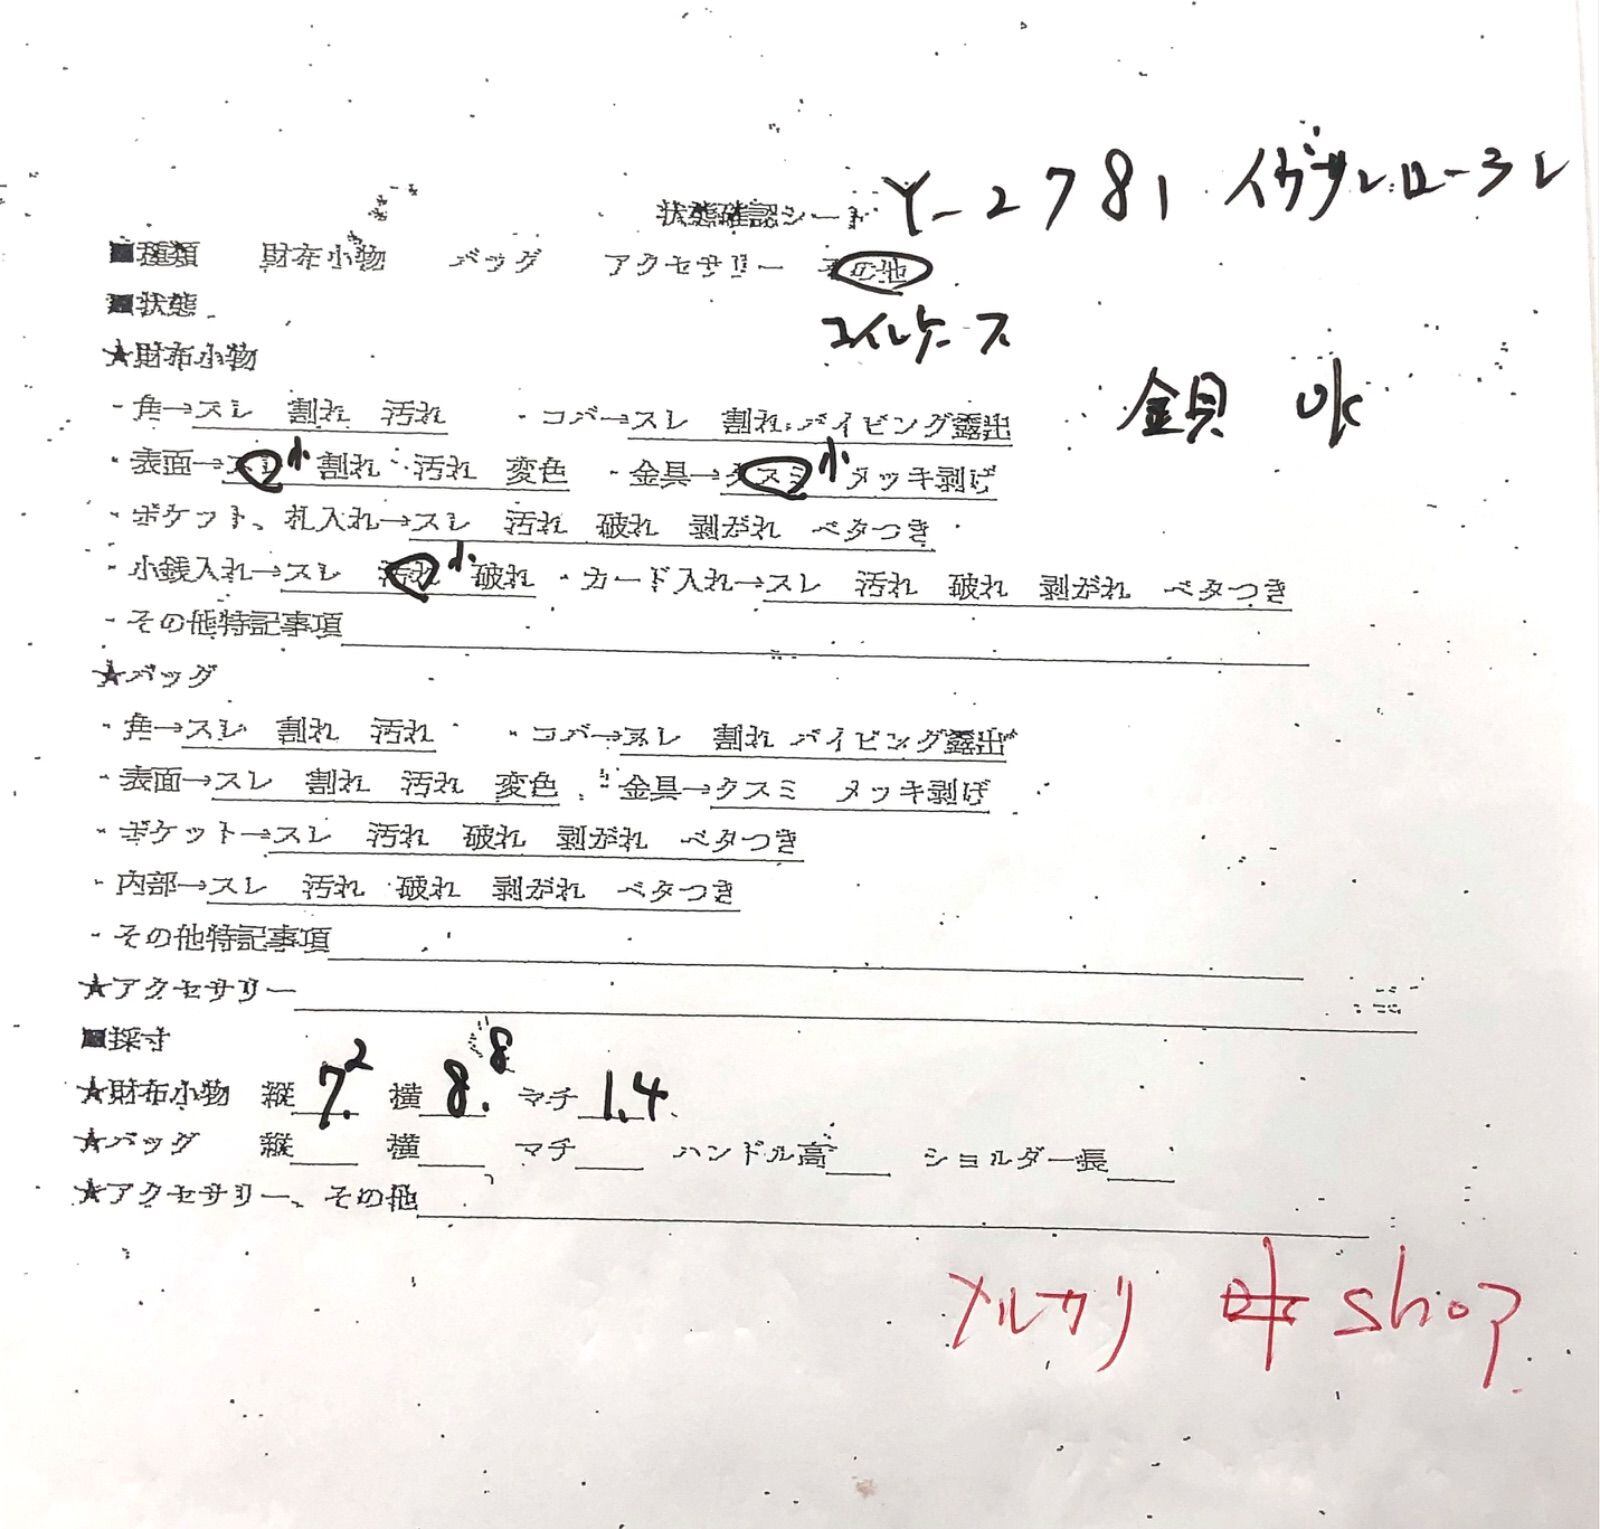 状態確認シート Y-2781 イヴサンローラン
■種類 財布小物 バッグ アクセサリー その他
■状態 コインケース
★財布小物
・角→スレ 割れ 汚れ ・コバ→スレ 割れ パイピング露出 金具 ok
・表面→スレ 小 割れ 汚れ 変色 ・金具→クスミ 小 メッキ剥げ
・ポケット、札入れ→スレ 汚れ 破れ 剥がれ ベタつき
・小銭入れ→スレ 汚れ 小 破れ ・カード入れ→スレ 汚れ 破れ 剥がれ ベタつき
・その他特記事項
★バッグ
・角→スレ 割れ 汚れ ・コバ→スレ 割れ パイピング露出
・表面→スレ 割れ 汚れ 変色 ・金具→クスミ メッキ剥げ
・ポケット→スレ 汚れ 破れ 剥がれ ベタつき
・内部→スレ 汚れ 破れ 剥がれ ベタつき
・その他特記事項
★アクセサリー
■採寸
★財布小物 縦 7.2 横 8.8 マチ 1.4
★バッグ 縦 横 マチ ハンドル高 ショルダー長
★アクセサリー、その他
メルカリ shop